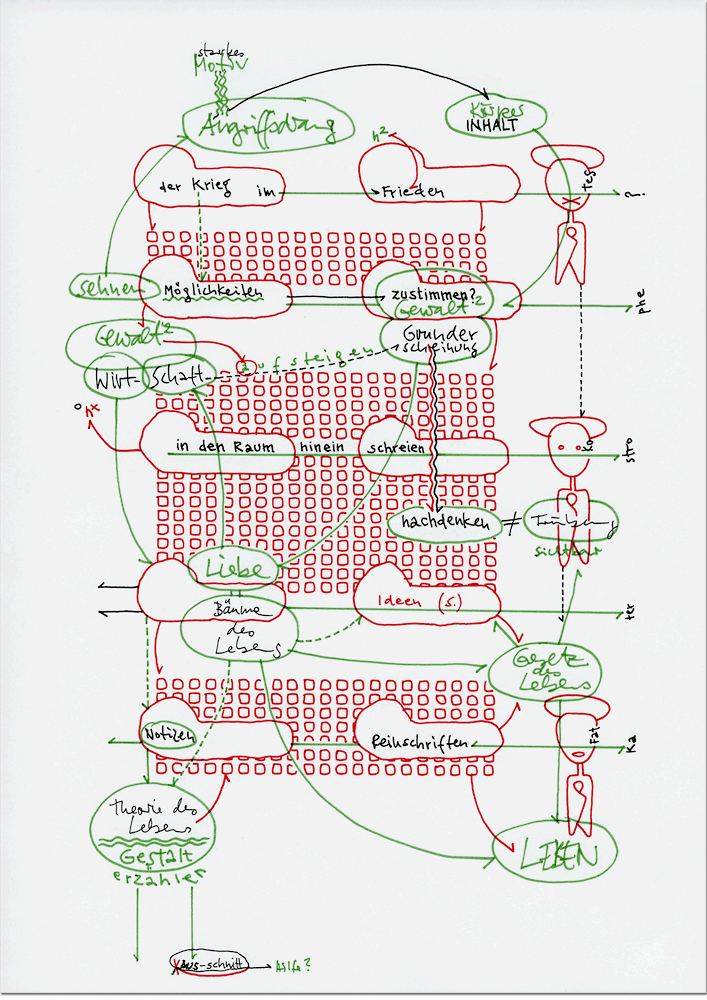 starkes
Motiv
Angriffsdrang
Körper
INHALT
h²
der Krieg im
Frieden
Teg
?!
sehnen
Möglichkeiten
zustimmen?
Gewalt²
phe
Gewalt²
Grunder
scheinung
Wirt-
Schaft
aufsteigen
hx
in den Raum hinein schreien
stro
nachdenken
≠
sichtbar
Liebe
Bäume
des
Lebens
Ideen (S.)
Gesetz
des
Lebens
Notizen
Reinschriften
Fat
Ka
theorie des
Lebens
Gestalt
erzähler
LEBEN
Aus-schnitt